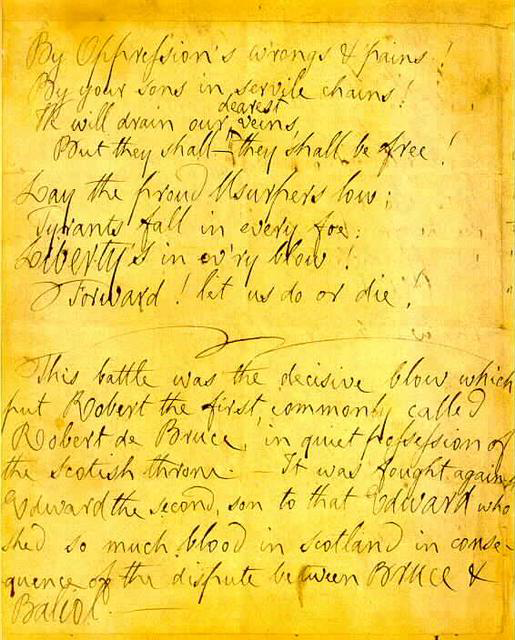 By Oppression's wrongs & pains!
By your sons in servile chains!
dearest
We will drain our veins,
But they shall — they shall be free!
Lay the proud Usurpers low;
Tyrants fall in every foe;
LIBERTY's in ev'ry blow!
Forward! let us do or die!
This battle was the decisive blow which
put Robert the first, commonly called
Robert de Bruce, in quiet possession of
the Scotish throne. — It was fought against
Edward the second, son to that Edward who
shed so much blood in Scotland in conse-
quence of the dispute between Bruce &
Baliol. —